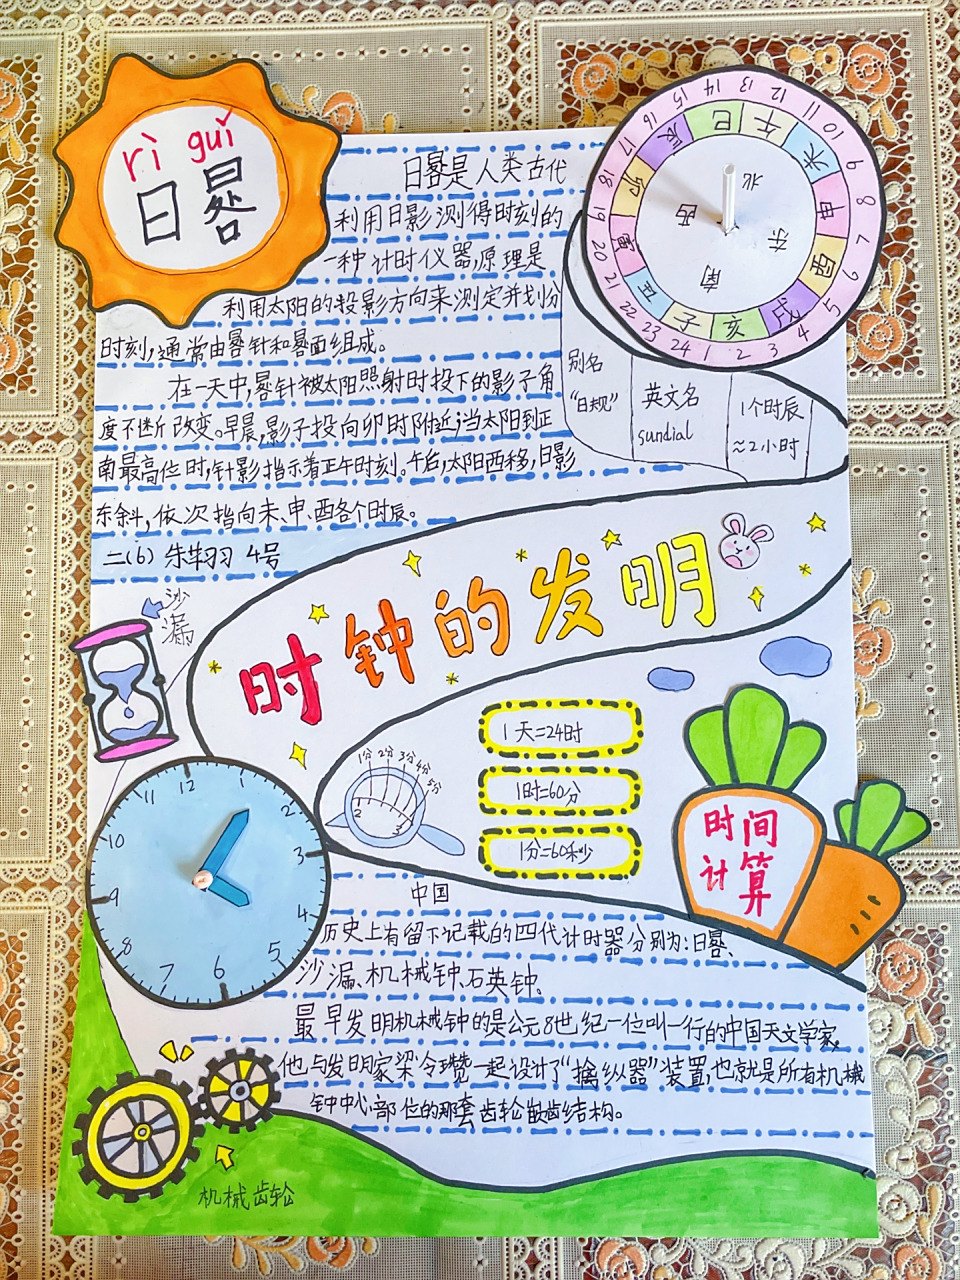 rì guǐ
日晷
日晷是人类古代
利用日影测得时刻的
一种计时仪器,原理是
利用太阳的投影方向来测定并划分
时刻,通常由晷针和晷面组成。
在一天中,晷针被太阳照射时投下的影子角
度不断改变。早晨,影子投向卯时附近;当太阳到正
南最高位时,针影指示着正午时刻。午后,太阳西移,日影
东斜,依次指向未、申、酉各个时辰。
二(6) 4号
13 12 11 10 9 8 7 6 5 4 3 2 1 24 23 22 21 20 19 18 17 16 15 14
午 未 申 酉 戌 亥 子 丑 寅 卯 辰 巳
北
东
南
西
别名
“日规”
英文名
sundial
1个时辰
≈2小时
时钟的发明
沙
漏
12
11
10
9
8
7
6
5
4
3
2
1分 2分 3分 4分 5分
2
3
1天=24时
1时=60分
1分=60秒
时间
计算
中国
历史上有留下记载的四代计时器分别为:日晷、
沙漏、机械钟、石英钟、
最早发明机械钟的是公元8世纪一位叫一行的中国天文学家,
他与发明家梁令瓒一起设计了“擒纵器”装置,也就是所有机械
钟中心部位的那套齿轮散齿结构。
机械齿轮